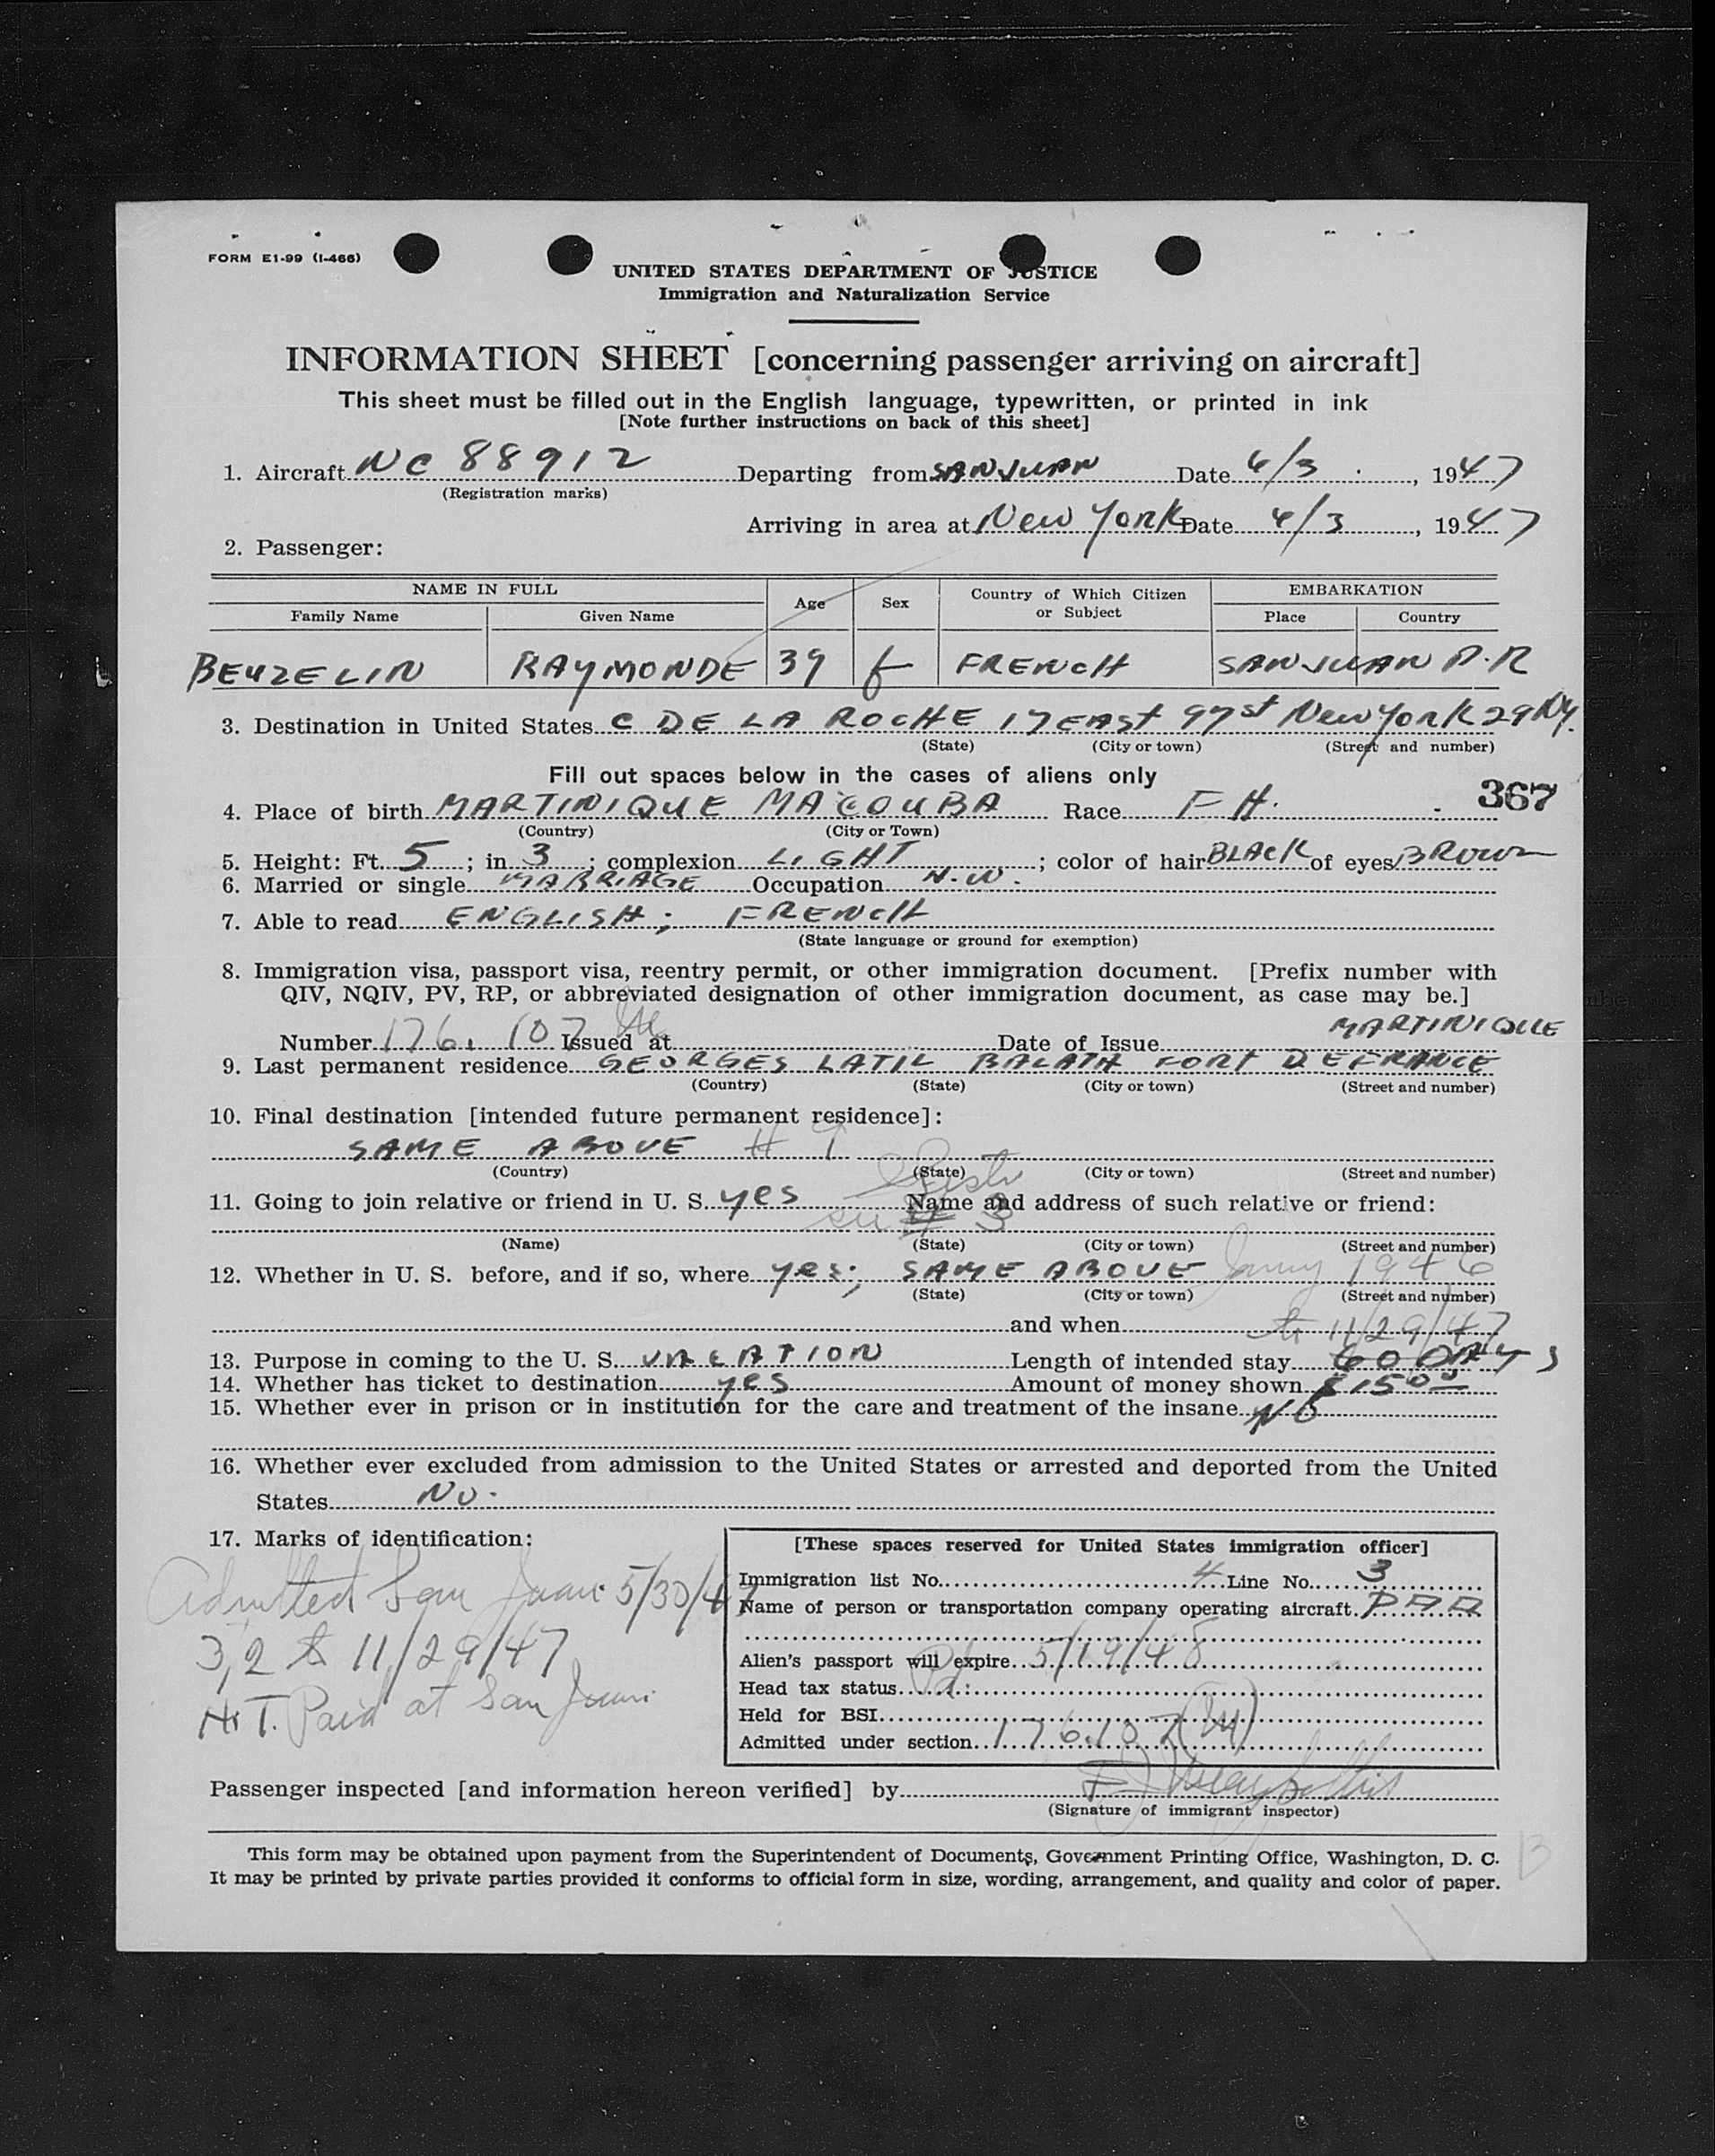 FORM E1-99 (I-466)
UNITED STATES DEPARTMENT OF JUSTICE
Immigration and Naturalization Service
INFORMATION SHEET [concerning passenger arriving on aircraft]
This sheet must be filled out in the English language, typewritten, or printed in ink
[Note further instructions on back of this sheet]
1. Aircraft NC 88912 Departing from SAN JUAN Date 6/3, 1947
(Registration marks)
Arriving in area at New York Date 6/3, 1947
2. Passenger:
NAME IN FULL Age Sex Country of Which Citizen or Subject EMBARKATION
Family Name Given Name Place Country
BEUZELIN RAYMONDE 39 f FRENCH SAN JUAN P.R
3. Destination in United States C DE LA ROCHE 17 EAST 97 st New York 29 NY.
(State) (City or town) (Street and number)
Fill out spaces below in the cases of aliens only
367
4. Place of birth MARTINIQUE MACOUBA Race F H.
(Country) (City or Town)
5. Height: Ft. 5; in. 3; complexion LIGHT; color of hair BLACK of eyes BROWN
6. Married or single MARRIAGE Occupation H.W.
7. Able to read ENGLISH; FRENCH
(State language or ground for exemption)
8. Immigration visa, passport visa, reentry permit, or other immigration document. [Prefix number with
QIV, NQIV, PV, RP, or abbreviated designation of other immigration document, as case may be.]
Number 176.107 Issued at Date of Issue
MARTINIQUE
9. Last permanent residence GEORGES LATIL BALATA FORT DE FRANCE
(Country) (State) (City or town) (Street and number)
10. Final destination [intended future permanent residence]:
SAME ABOVE # 9
(Country) (State) (City or town) (Street and number)
11. Going to join relative or friend in U. S. yes Name and address of such relative or friend:
# 3
(Name) (State) (City or town) (Street and number)
12. Whether in U. S. before, and if so, where yes; SAME ABOVE 1946
(State) (City or town) (Street and number)
and when to 11/29/47
13. Purpose in coming to the U. S. VACATION Length of intended stay 60 DAYS
14. Whether has ticket to destination yes Amount of money shown $ 150 00
15. Whether ever in prison or in institution for the care and treatment of the insane NO
16. Whether ever excluded from admission to the United States or arrested and deported from the United
States No.
17. Marks of identification:
Admitted San Juan 5/30/47
3,2 to 11/29/47
H.T. Paid at San Juan
[These spaces reserved for United States immigration officer]
Immigration list No. 4 Line No. 3
Name of person or transportation company operating aircraft. PAA
Alien's passport will expire 5/19/48
Head tax status Pd.
Held for BSI
Admitted under section 176.107
Passenger inspected [and information hereon verified] by
(Signature of immigrant inspector)
This form may be obtained upon payment from the Superintendent of Documents, Government Printing Office, Washington, D. C.
It may be printed by private parties provided it conforms to official form in size, wording, arrangement, and quality and color of paper.